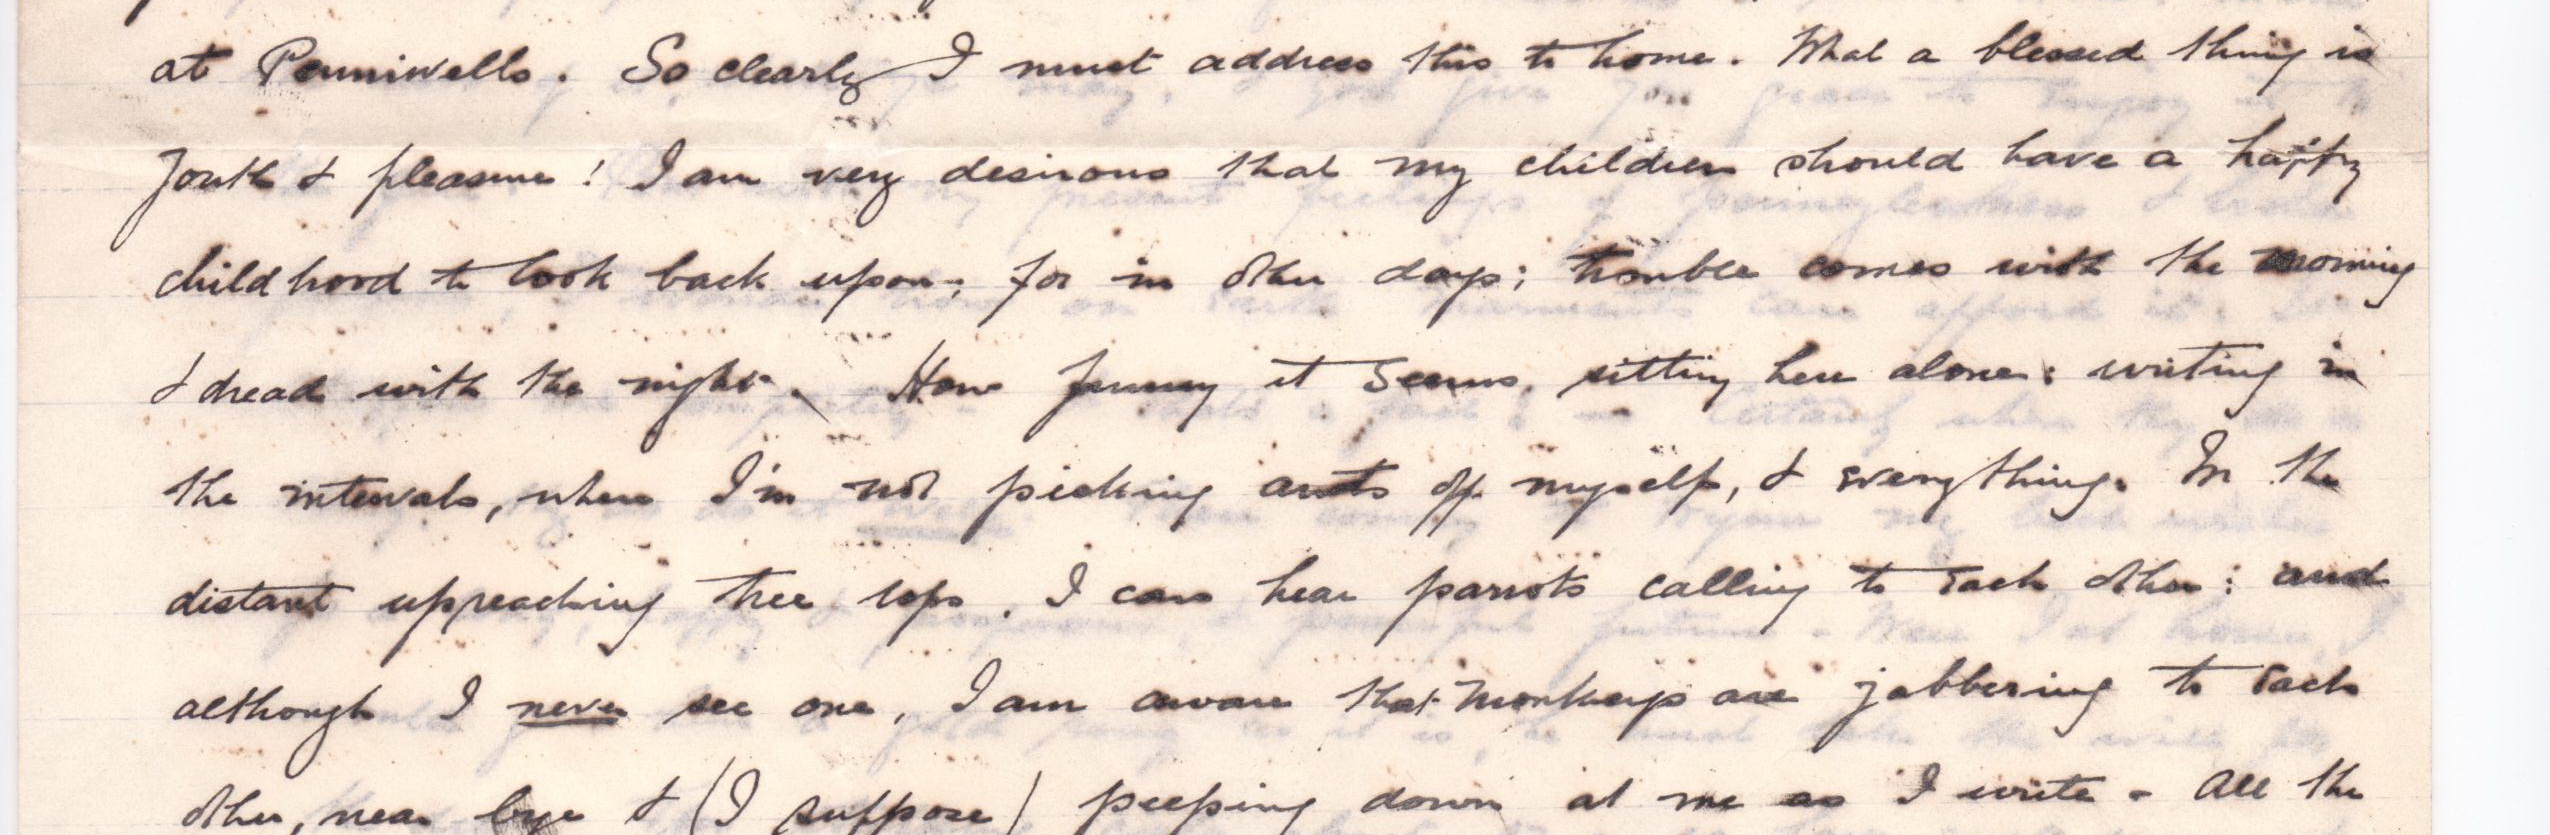 at Penniwells. So clearly I must address this to home. What a blessed thing is
Youth & pleasure! I am very desirous that my children should have a happy
childhood to look back upon; for in other days; trouble comes with the morning
& dread with the night. How funny it seems, sitting here alone: writing in
the intervals, when I'm not picking ants off myself, & everything. In the
distant upreaching tree tops. I can hear parrots calling to each other: and
although I never see one, I am aware that monkeys are jabbering to each
other, near bye & (I suppose) peeping down at me as I write - All the